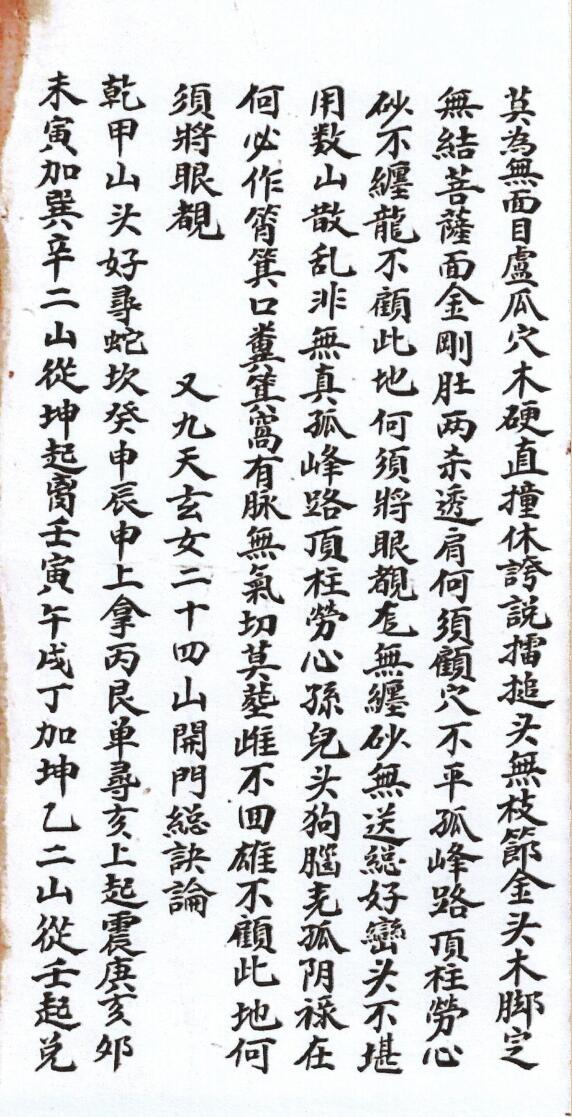 莫為無面目盧瓜穴木硬直撞休誇説擂搥头無枝節金头木脚定
無結菩薩面金剛肚两杀透肩何須顧穴不平孤峰路頂枉勞心
砂不纒龍不顧此地何須將眼覩龙無纒砂無送総好巒头不堪
用数山散乱非無真孤峰路頂枉勞心孫兒头狗腦壳孤阴祿在
何必作筲箕口糞箕窩有脉無氣切莫塟雌不回雄不顧此地何
須將眼覩
又九天玄女二十四山開門総訣論
乾甲山头好尋蛇坎癸申辰申上拿丙艮单尋亥上起震庚亥夘
未寅加巽辛二山從坤起离壬寅午戌丁加坤乙二山從壬起兑